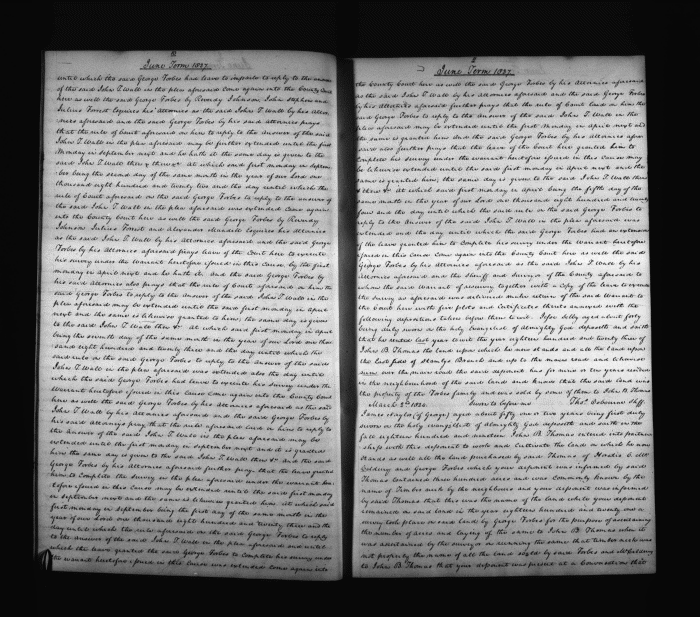 June Term 1827.
until which the said George Forbes had leave to imparle to reply to the answer
of the said John T. Wall in the plea aforesaid came again into the County Court
here as well the said George Forbes by Reverdy Johnson, John Stephen and
Julius Forrest Esquires his attornies as the said John T. Wall by his attor
nies aforesaid and the said George Forbes by his said attornies prays
that the rule of Court aforesaid on him to reply to the answer of the said
John T. Wall in the plea aforesaid may be further extended until the first
Monday in September next and he hath it the same day is given to the
said John T. Wall there &c. At which said first monday in Septem
ber being the second day of the same month in the year of our Lord one
thousand eight hundred and twenty two and the day until which the
rule of Court aforesaid on the said George Forbes to reply to the answer of
the said John T. Wall in the plea aforesaid was extended came again
into the County Court here as well the said George Forbes by Reverdy
Johnson Julius Forrest and Alexander Esquires his attornies
as the said John T. Wall by his attornies aforesaid and the said George
Forbes by his attornies aforesaid prays leave of the Court here to execute
his survey under the Warrant heretofore issued in this cause by the first
monday in april next and he hath it. And the said George Forbes by
his said attornies also prays that the rule of Court aforesaid on him the
said George Forbes to reply to the answer of the said John T. Wall in the
plea aforesaid may be extended until the said first monday in april
next and the same is likewise granted to him; the same day is given
to the said John T. Wall there &c. At which said first monday in april
being the seventh day of the same month in the year of our Lord one thou
sand eight hundred and twenty three and the day until which the
said rule on the said George Forbes to reply to the answer of the said
John T. Wall in the plea aforesaid was extended also the day until
which the said George Forbes had leave to execute his survey under the
Warrant heretofore issued in this cause came again into the County Court
here as well the said George Forbes by his attornies aforesaid as the said
John T. Wall by his attornies aforesaid and the said George Forbes by
his said attornies pray that the rule aforesaid laid on him to reply to
the answer of the said John T. Wall in the plea aforesaid may be
extended until the first monday in september next and it is granted
him the same day is given to the said John T. Wall there &c. and the said
George Forbes by his attornies aforesaid further pray that the leave granted
him to Complete the survey in the plea aforesaid under the warrant here
tofore issued in this cause may be extended until the said first monday
in september next and the same is likewise granted him. At which said
first monday in september being the first day of the same month in the
year of our Lord one thousand eight hundred and twenty three and the
day until which the rule aforesaid on the said George Forbes to reply
to the answer of the said John T. Wall in the plea aforesaid and until
which the leave granted the said George Forbes to Complete his survey under
the warrant heretofore issued in this cause was extended came again into
June Term 1827.
the County Court here as well the said George Forbes by his attornies aforesaid
as the said John T. Wall by his attornies aforesaid and the said George Forbes
by his attornies aforesaid further prays that the rule of Court laid on him the
said George Forbes to reply to the answer of the said John T. Wall in the
plea aforesaid may be extended until the first monday in april next and
the same is granted him and the said George Forbes by his attornies afore
said also further prays that the leave of the Court here granted him to
Complete his survey under the warrant heretofore issued in this cause may
be likewise extended until the said first monday in april next and the
same is granted him; the same day is given to the said John T. Wall there
&c. At which said first monday in april being the fifth day of the
same month in the year of our Lord one thousand eight hundred and twenty
four and the day until which the said rule on the said George Forbes to
reply to the answer of the said John T. Wall in the plea aforesaid was
extended and the day until which the said George Forbes had an extension
of the leave granted him to Complete his survey under the Warrant heretofore
issued in this cause came again into the County Court here as well the said
George Forbes by his attornies aforesaid as the said John T. Wall by his
attornies aforesaid and the Sheriff and Surveyor of the County aforesaid to
whom the said Warrant of resurvey together with a Copy of the leave to execute
the survey as aforesaid was delivered make return of the said Warrant to
the Court here with five plots and Certificates thereto annexed with the
following depositions taken before them to wit. aged about forty
being duly sworn on the holy Evangelist of Almighty God deposeth and saith
that he rented last year to wit the year eighteen hundred and twenty three of
John B. Thomas the land upon which he now stands and all the land upon
the East side of Branch and up to the main road and likewise
over the main road the said deponent has for nine or ten years resided
in the neighbourhood of the said land and knows that the said land was
the property of the Forbes family and was sold by some of them to John B. Thomas
March 2nd 1824. Sworn to before me Thos. Osbourn Shff.
James Naylor (of George) aged about fifty one or two years being first duly
sworn on the holy evangelist of Almighty God deposeth and saith in the
fall eighteen hundred and nineteen John B. Thomas entered into partner
ship with this deponent to work and Cultivate the land on which he now
stands as well all the land purchased by said Thomas of
and George Forbes which your deponent was informed by said
Thomas contained three hundred acres and was Commonly known by the
name of Timber neck by the neighbours and your deponent was informed
by said Thomas that this was the name of the land while your deponent
remained on said land in the year eighteen hundred and twenty one a
survey took place on said land by George Forbes for the purpose of ascertaining
the number of acres and laying of the same to John B. Thomas when it
was ascertained by the surveyor on running the same that timber neck was
not properly the name of all the land sold by said Forbes and
to John B. Thomas that your deponent was present at a Conversation that